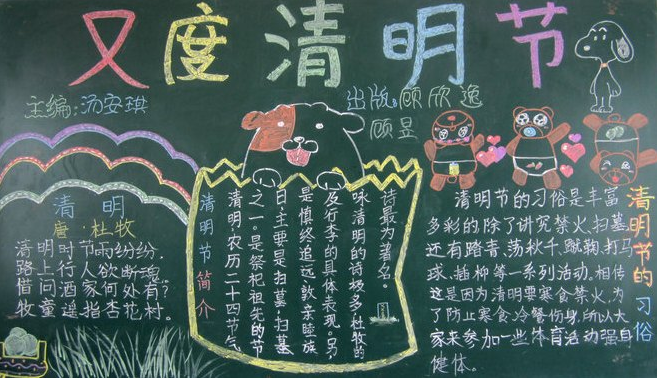 又度清明节
主编:汤安琪
出版:顾欣逸
顾昱
清明
唐·杜牧
清明时节雨纷纷,
路上行人欲断魂。
借问酒家何处有?
牧童遥指杏花村。
清明节简介
清明,农历二十四节气
之一。是祭祀祖先的节
日主要是扫墓,扫墓
是慎终追远敦亲睦族
及行孝的具体表现。另,
咏清明的诗极多,杜牧的
诗最为著名。
清明节的习俗
清明节的习俗是丰富
多彩的除了讲究禁火、扫墓,
还有踏青、荡秋千、蹴鞠、打马
球、插柳等一系列活动。相传
这是因为清明要寒食禁火,为
了防止寒食、冷餐伤身,所以大
家来参加一些体育活动强身
健体。